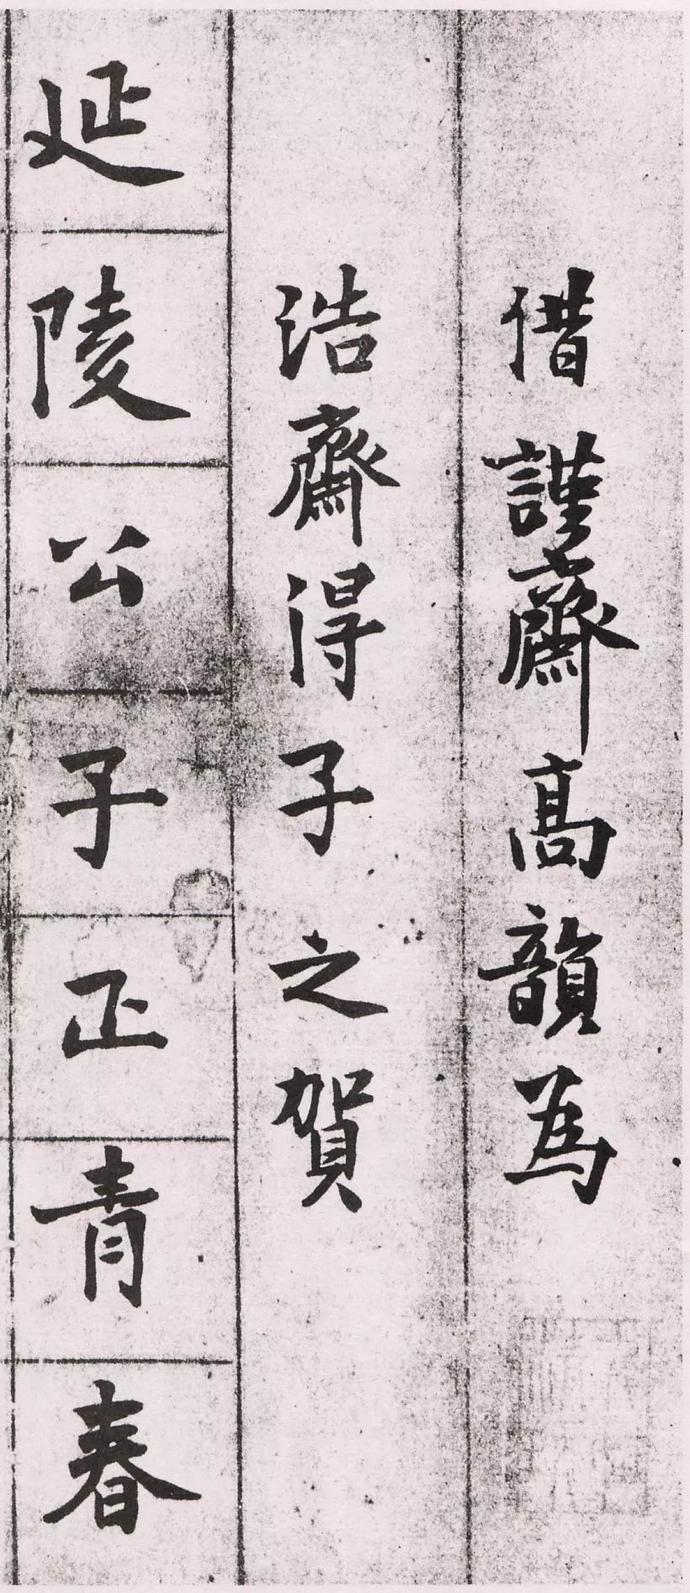 借謹齋高韻為
浩齋得子之賀
延陵公子正青春